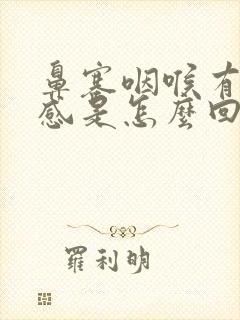 鼻塞咽喉有
感是怎麼回
羅利明